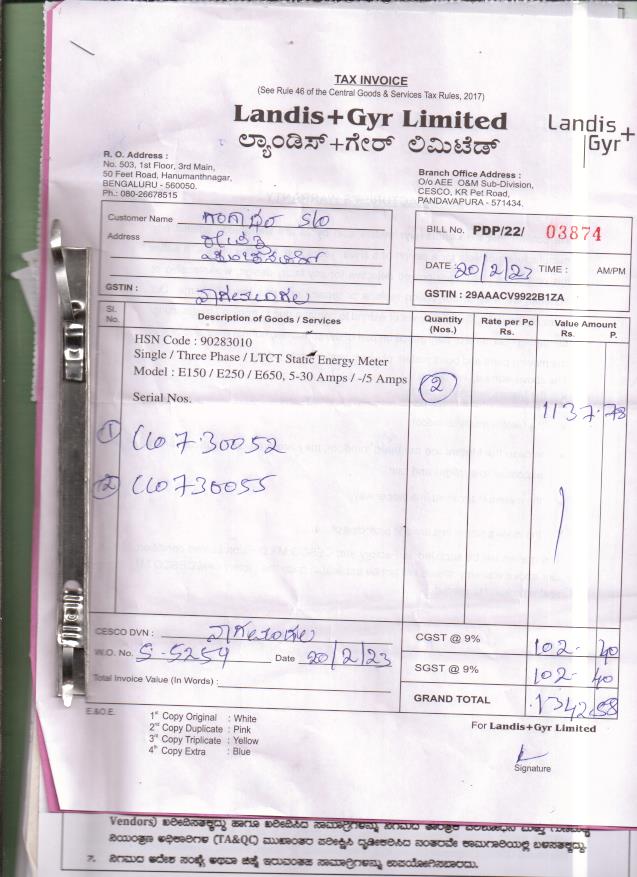 TAX INVOICE
(See Rule 46 of the Central Goods & Services Tax Rules, 2017)
Landis+Gyr Limited
ಲ್ಯಾಂಡಿಸ್+ಗೇರ್ ಲಿಮಿಟೆಡ್
Landis+
Gyr
R. O. Address :
No. 503, 1st Floor, 3rd Main,
50 Feet Road, Hanumanthnagar,
BENGALURU - 560050.
Ph.: 080-26678515
Branch Office Address :
O/o AEE O&M Sub-Division,
CESCO, KR Pet Road,
PANDAVAPURA - 571434.
Customer Name ಗಂಗಾಧರ S/O
Address
GSTIN :
BILL No. PDP/22/ 03874
DATE : 20/2/23 TIME : AM/PM
GSTIN : 29AAACV9922B1ZA
Sl. No. Description of Goods / Services Quantity (Nos.) Rate per Pc Rs. Value Amount Rs. P.
HSN Code : 90283010
Single / Three Phase / LTCT Static Energy Meter
Model : E150 / E250 / E650, 5-30 Amps / -/5 Amps 2
Serial Nos. 1137.78
1 CU0730052
2 CU0730055
CESCO DVN :
W.O. No. S-5254 Date 20/2/23
Total Invoice Value (In Words) :
CGST @ 9% 102. 40
SGST @ 9% 102. 40
GRAND TOTAL 1342.58
E.&O.E.
1st Copy Original : White
2nd Copy Duplicate : Pink
3rd Copy Triplicate : Yellow
4th Copy Extra : Blue
For Landis+Gyr Limited
Signature
Vendors) ಖರೀದಿಸತಕ್ಕದ್ದು ಹಾಗೂ ಖರೀದಿಸಿದ ಸಾಮಾಗ್ರಿಗಳನ್ನು ನಿಗಮದ
ನಿಯಂತ್ರಣ ಅಧಿಕಾರಿಗಳ (TA&QC) ಮುಖಾಂತರ ಪರೀಕ್ಷಿಸಿ ದೃಢೀಕರಿಸಿದ ನಂತರವೇ ಕಾಮಗಾರಿಯಲ್ಲಿ ಬಳಸತಕ್ಕದ್ದು.
7. ನಿಗಮದ ಆದೇಶ ಸಂಖ್ಯೆ ಅಥವಾ ಚಿಹ್ನೆ ಇರುವಂತಹ ಸಾಮಾಗ್ರಿಗಳನ್ನು ಉಪಯೋಗಿಸಬಾರದು.